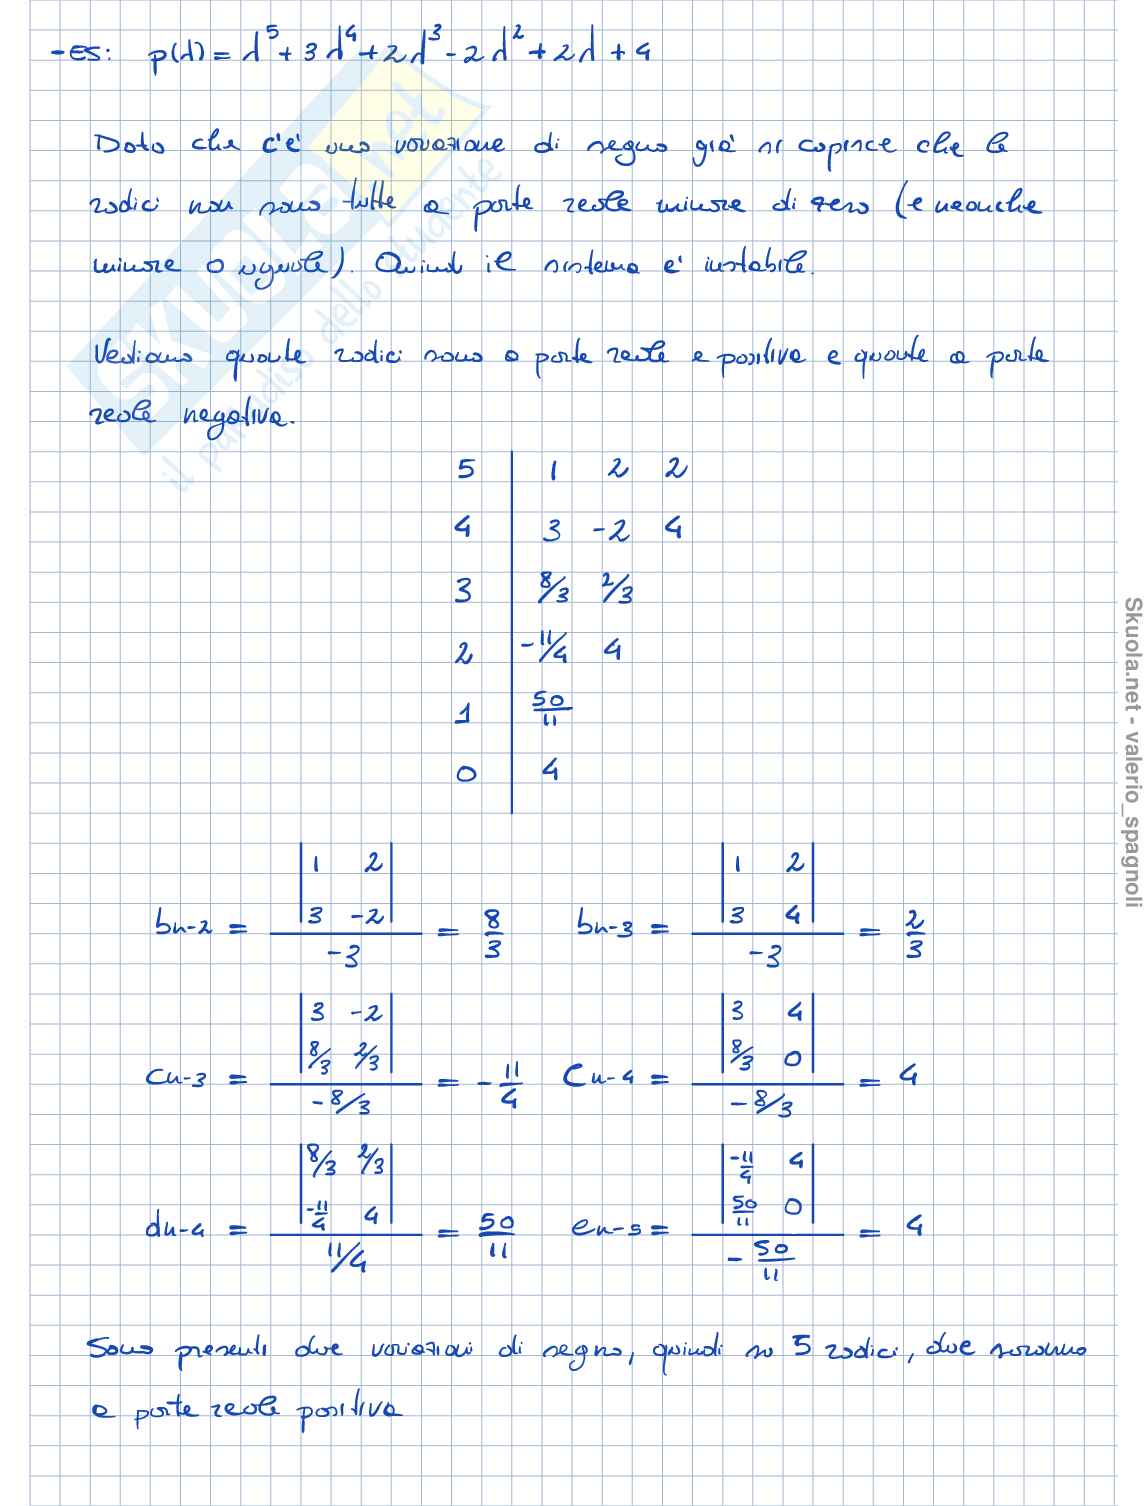 -es: p(λ) = λ⁵ + 3λ⁴ + 2λ³ - 2λ² + 2λ + 4
Dato che c'è una variazione di segno già si capisce che le
radici non sono tutte a parte reale minore di zero (e neanche
minore o uguale). Quindi il sistema è instabile.
Vediamo quante radici sono a parte reale e positiva e quante a parte
reale negativa.
5 | 1 2 2
4 | 3 -2 4
3 | 8/3 2/3
2 | -11/4 4
1 | 50/11
0 | 4
bn-2 = |1 2; 3 -2| / -3 = 8/3 bn-3 = |1 2; 3 4| / -3 = 2/3
cn-3 = |3 -2; 8/3 2/3| / -8/3 = -11/4 cn-4 = |3 4; 8/3 0| / -8/3 = 4
dn-4 = |8/3 2/3; -11/4 4| / 11/4 = 50/11 en-5 = |-11/4 4; 50/11 0| / -50/11 = 4
Sono presenti due variazioni di segno, quindi su 5 radici, due saranno
a parte reale positiva
SKUOLA.net
il paradiso dello studente
Skuola.net - valerio_spagnoli